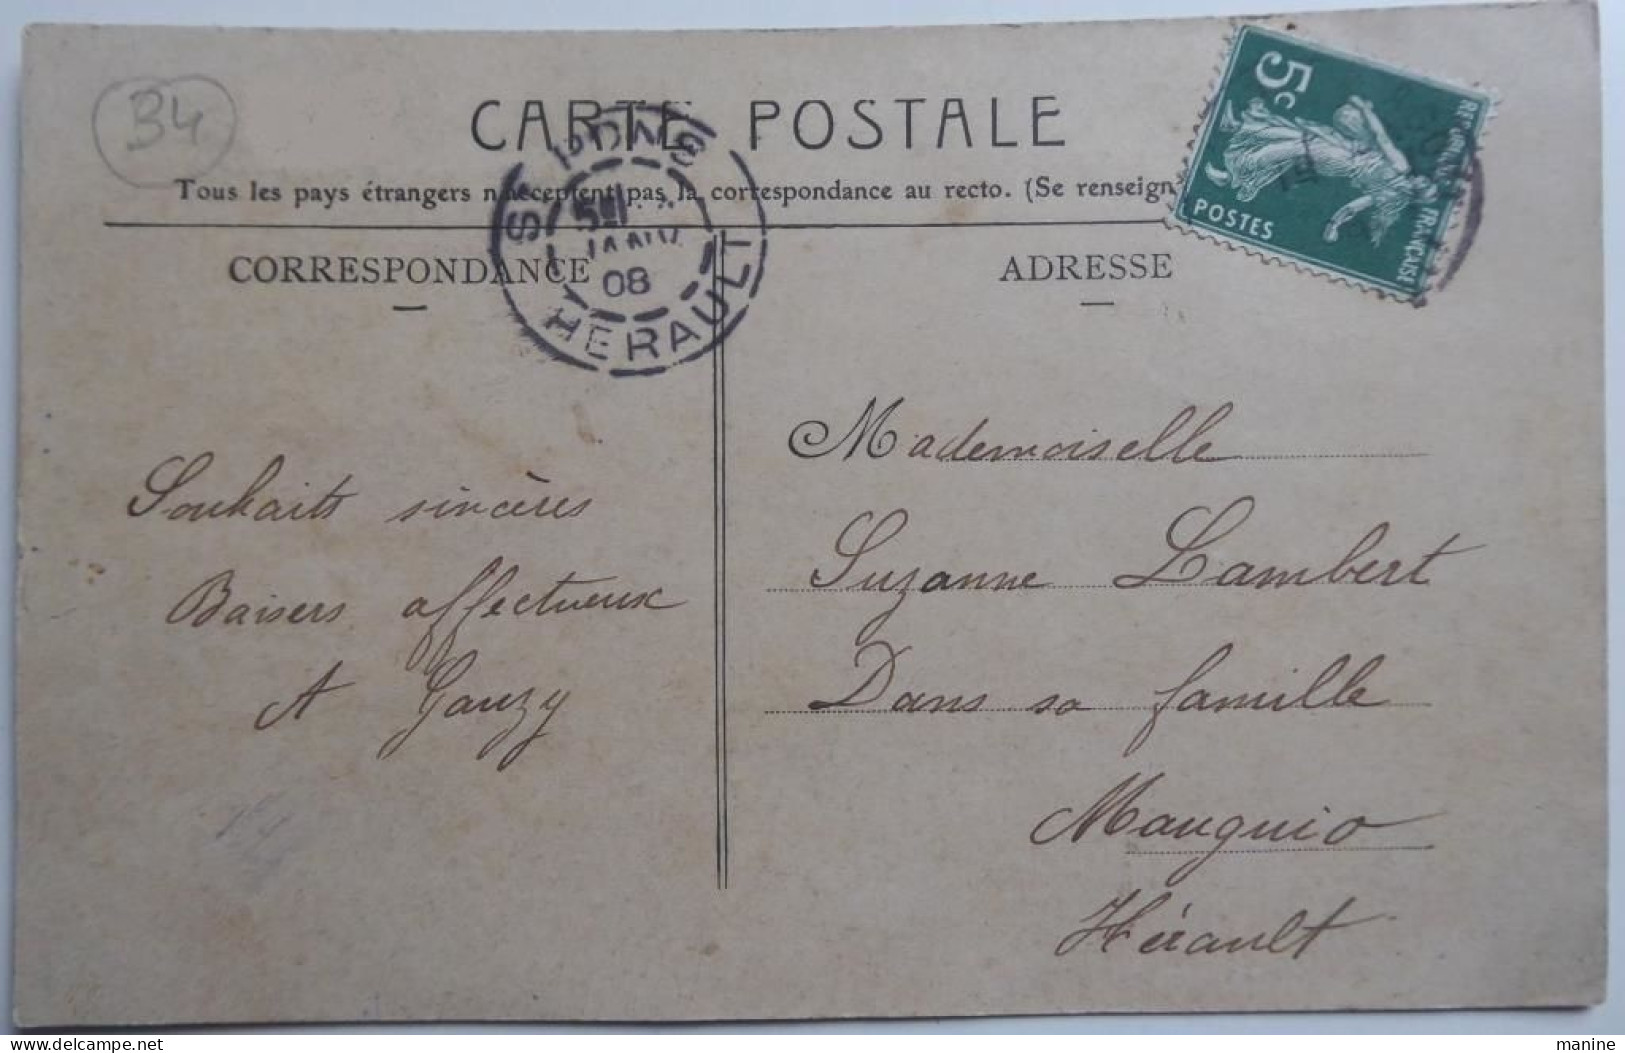 34
CARTE POSTALE
Tous les pays étrangers n'acceptent pas la correspondance au recto. (Se renseign
5c
POSTES
REPUBLIQUE FRANÇAISE
JANV
08
HERAULT
CORRESPONDANCE
ADRESSE
Souhaits sincères
Baisers affectueux
A Gauzy
Mademoiselle
Suzanne Lambert
Dans sa famille
Mauguio
Hérault
delcampe.net
manine